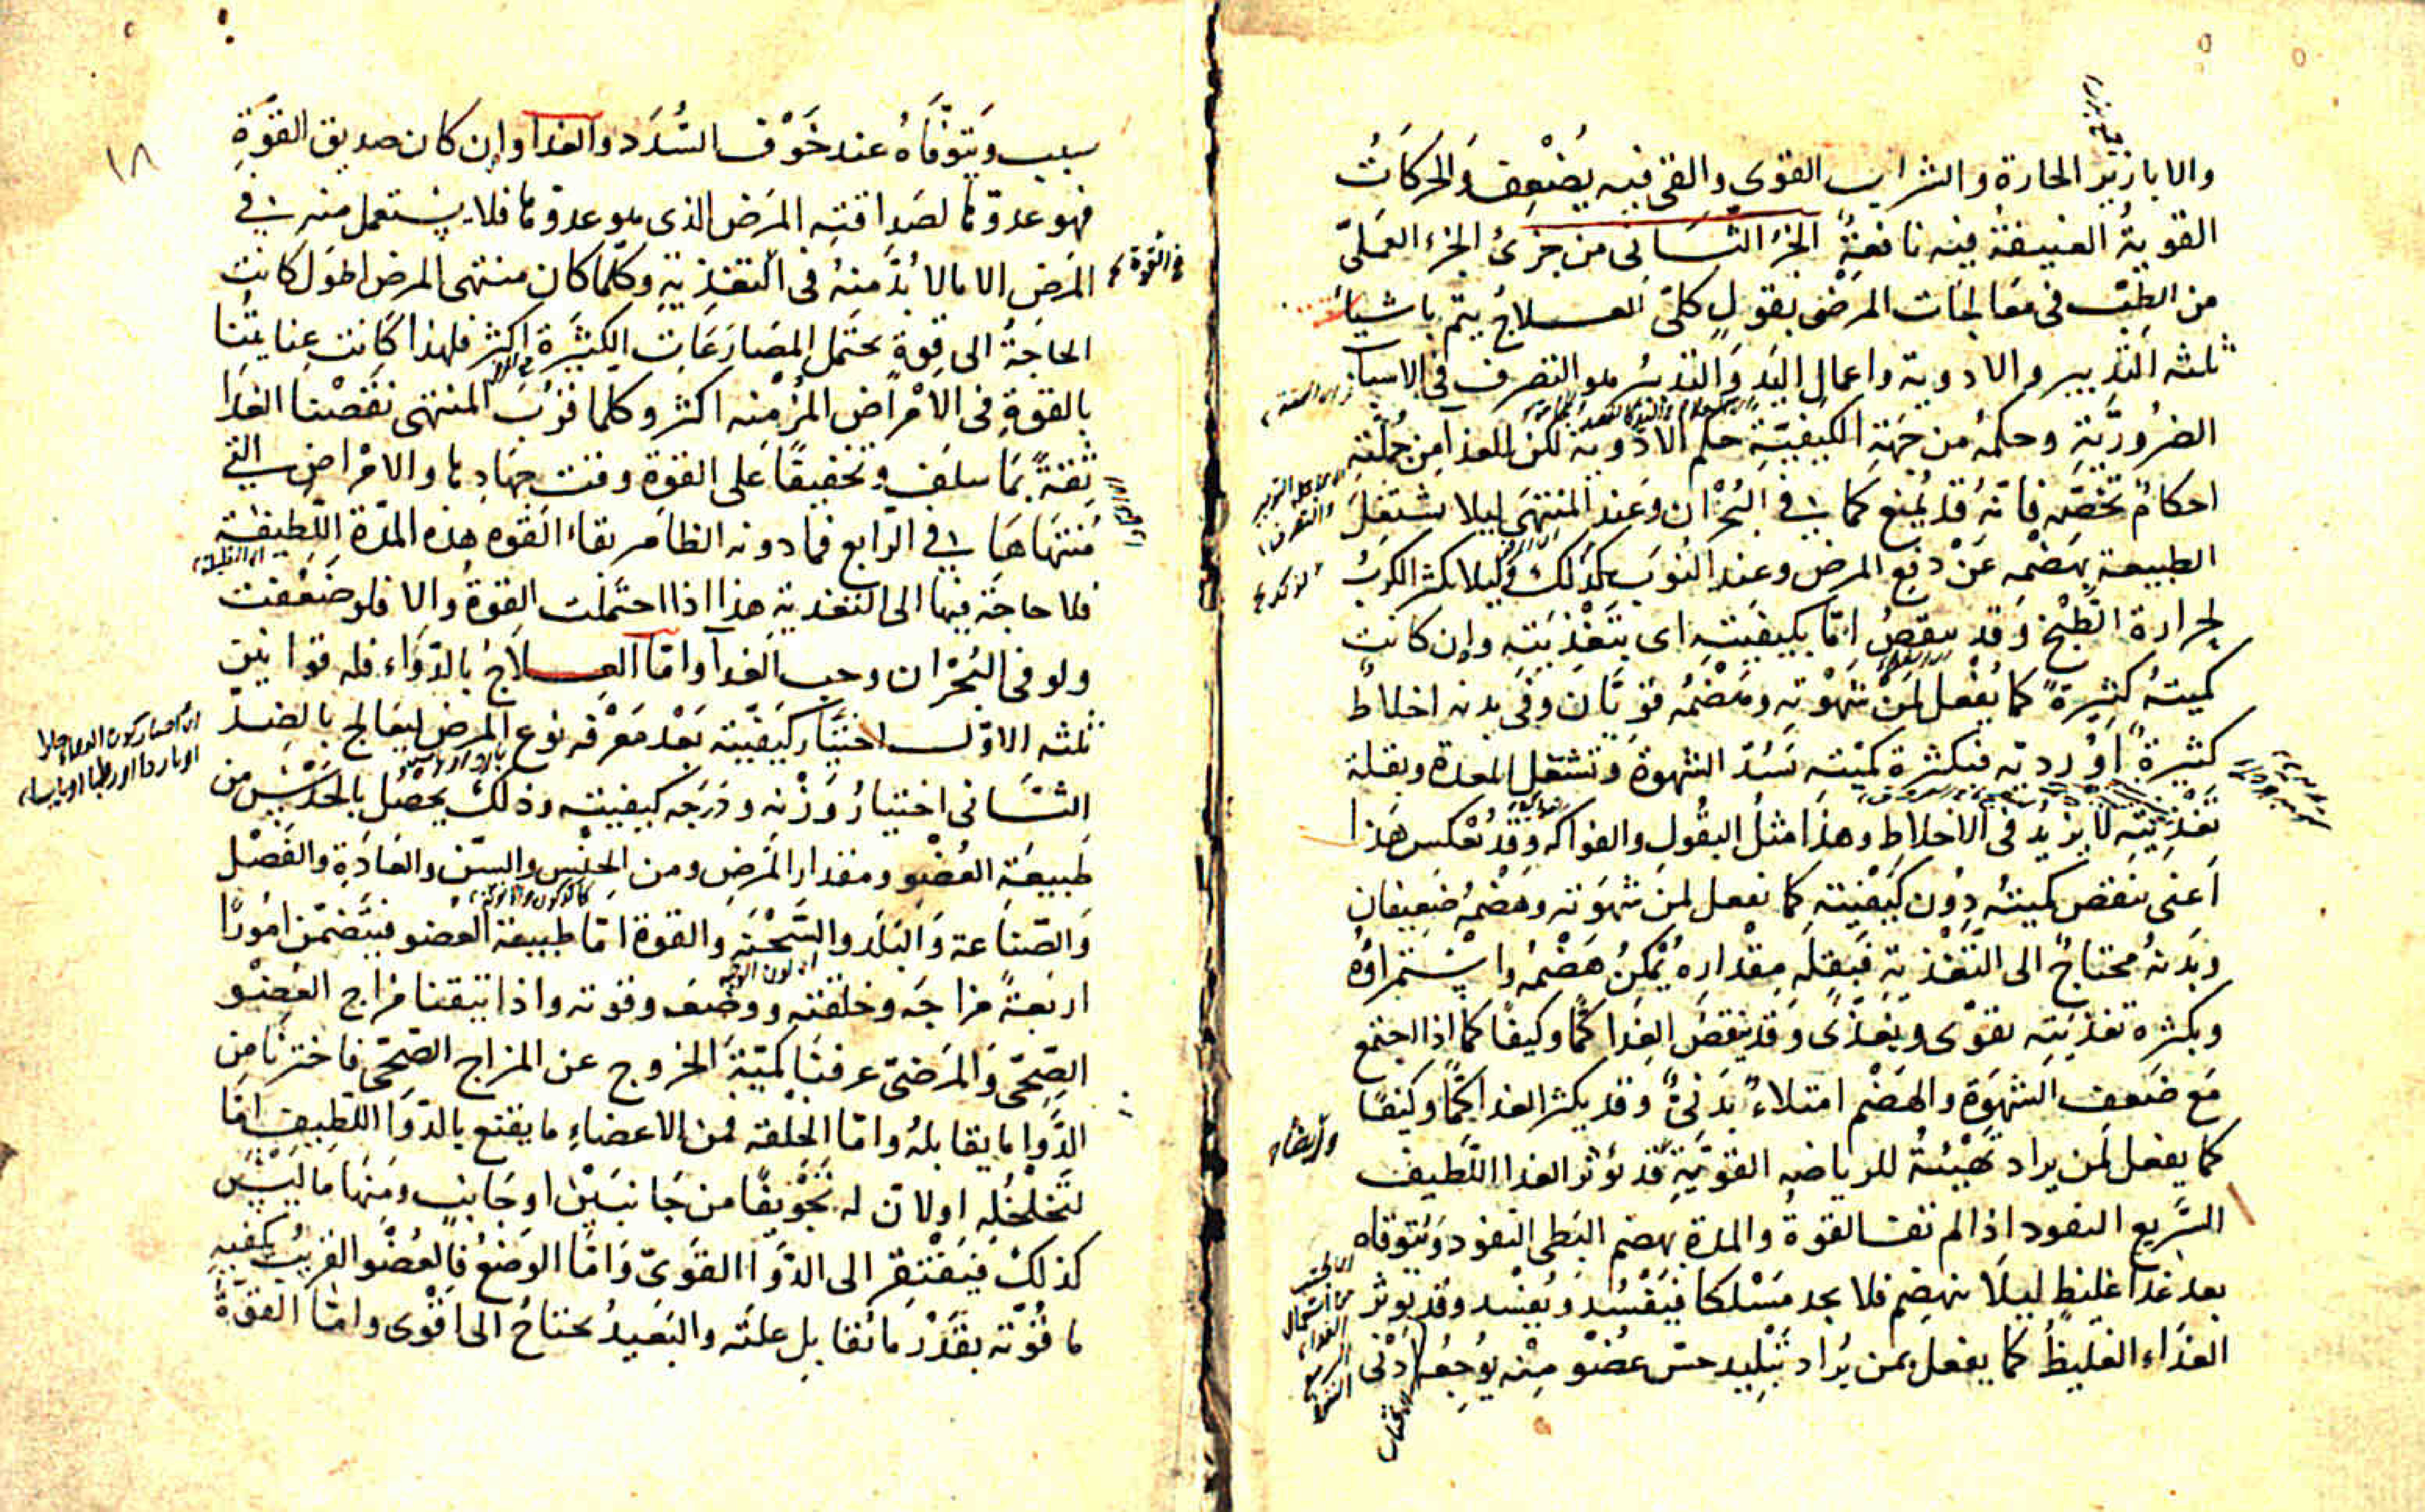 والابازير الحارة والشراب القوى والقئ فيه يُضْعِف وَالحركَاتُ
القويةُ العنيفةُ فيه نافعةٌ الجزءُ الثَّانى من جزئ الجزء العَمَلىّ
من الطِبّ فى مَعَالجَات المرَضى بقولٍ كلىّ العلاجُ يتم باشياء
ثلثه التدبير والادوية واعمال اليَد وَالتدبير هو التصرف فى الاسباب
الضرُوريَّةِ وحكمهُ من جهَةِ الكيْفيّةِ حكم الادْوية لكن للغذآ من جُملته
احكامٌ تخصّه فانّهُ قد يُمنع كما فى البُحْرَان وَعِند المنتهَى ليلا تشتغل
الطبيعة بهضْمِه عَنْ دفع المرض وعند النُوَب كذلك وَليلا يكثر الكربُ
لحرارة الطَبْخ وَقد ينقصُ امّا بكيفيّتهِ اى بتَغْذِيَتِه وإن كانت
كميتهُ كثيرةً كما يُفْعل لمنْ شهْوَته وهَضْمهُ قوِيّان وَفى بدنه اخلاطٌ
كثيرةٌ اوْ رديّة فبكثرة كميّته تَسُدّ الشهوة وَتشتغل المعدة وبقلة
تغْذِيتِه لا يزيد فى الاخلاطِ وهذا مثلُ البقُولِ والفواكه وَقدْ يُعْكس هَذا
اعنى ينقص كميتهُ دوُن كَيْفيّته كما يفعل لمنَ شهوَته وهَضْمهُ ضعِيفانِ
وبَدَنهُ محتاجٌ الى التّغْذية فبقِلة مقْداره يُمْكنُ هَضْمهُ واسْتمراؤهُ
وبكثرة تغذيَتِه يقوّى ويغذّى وَقد ينقصُ الغِذَا كمًّا وكيفًا كما اذا اجتمع
مَع ضَعف الشهوَة والهَضْم امتلاءٌ بَدَنىٌّ وَقد يكثر الغدا كمًّا وكيْفًا
كما يفعل لمن يراد تهْيئتهُ للرياضه القوِيّةِ قد يُؤثر الغدا اللّطيف
السَّريع النفود اذا لم تف القوةُ والمدة بهضم البَطى النفود وَيتوقاه
بعد غذآ غليظٍ ليلا ينهضِم فلا يجد مَسْلكا فيَفسُد وَيُفسْد وَقد يؤثر
الغذاء الغليظُ كما يفعل بمن يُراد تبْليد حسّ عضْوٍ مِنْه يوُجِعُه ادْنى
فى القوة
سبب وَيتوقّاهُ عند خَوْف السُّدَد والغدا وإن كان صديق القوّةِ
فهو عدوّها لصَداقتِه المَرَض الذى هو عدوّها فلا يستعمل منه فى
المرَض الا ما لا بُدَّ منهُ فى التّغذية وَكلّما كان منتهى المرض اطوَل كانت
الحاجَةُ الى قوةٍ تحتمل المصَارَعَاتِ الكثيَرة اكثر فلهذا كَانت عِنايتُنا
بالقوةِ فى الامْراض المُزْمنه اكثر وكلما قرُبَ المنتهى نقصْنا الغذَا
ثقةً بمَا سلف وتخفيفًا عَلى القوة وقت جهَادها والامْراض التى
مُنتهَاهَا فى الرّابع فما دونه الظاهر بقاءُ القوه هذه المدّة اللّطيفة
فلا حاجَة فيها الى التغذية هذا اذا احتمَلت القوةُ والا فلو ضَعُفت
ولو فى البُحْران وجب الغدآ وامّا العِلاجُ بالدّوَاء فله قوانين
ثلثه الاوّل اختيَار كيفيّته بَعْد مَعْرفه نوع المرض ليعَالج بالضدّ
الثَّانى اختيارُ وَزْنه ودَرَجه كيفيته وذلك يحصُل بالحَدْسِ من
طَبيعَةِ العُضْوِ ومقدار المَرَضِ ومن الجِنْسِ والسِّن والعَادَةِ والفَصْل
وَالصّناعة وَالبَلَد والسَّحْنَه والقوة امّا طبيعة العضو فيَتَضمّن امُورًا
اربَعةً مزاجَه وخلقته ووضعَه وقوته واذا تيقنا مزاج العُضْو
الصِحّى وَالمَرَضىّ عرفنَا كميّةَ الخروج عن المزاج الصّحّى فاخترنا من
الدَّوا ما يقابلهُ وامّا الخلقة فمن الاعضاءِ ما يقنع بالدّوَا اللّطيف امّا
لتَخَلْخُلهِ اولانّ له تَجْويفًا من جَانبَيْن او جَانبٍ ومنهَا ما ليْسَ
كذلك فيَفتقر الى الدّوَا القَوىّ وَامّا الوَضعُ فالعُضْو القريبُ يكفيه
ما قوّته بقَدْر ما تُقابل علته والبَعيدُ يحتاجُ الى اقْوى وامّا القوّةُ
١٨